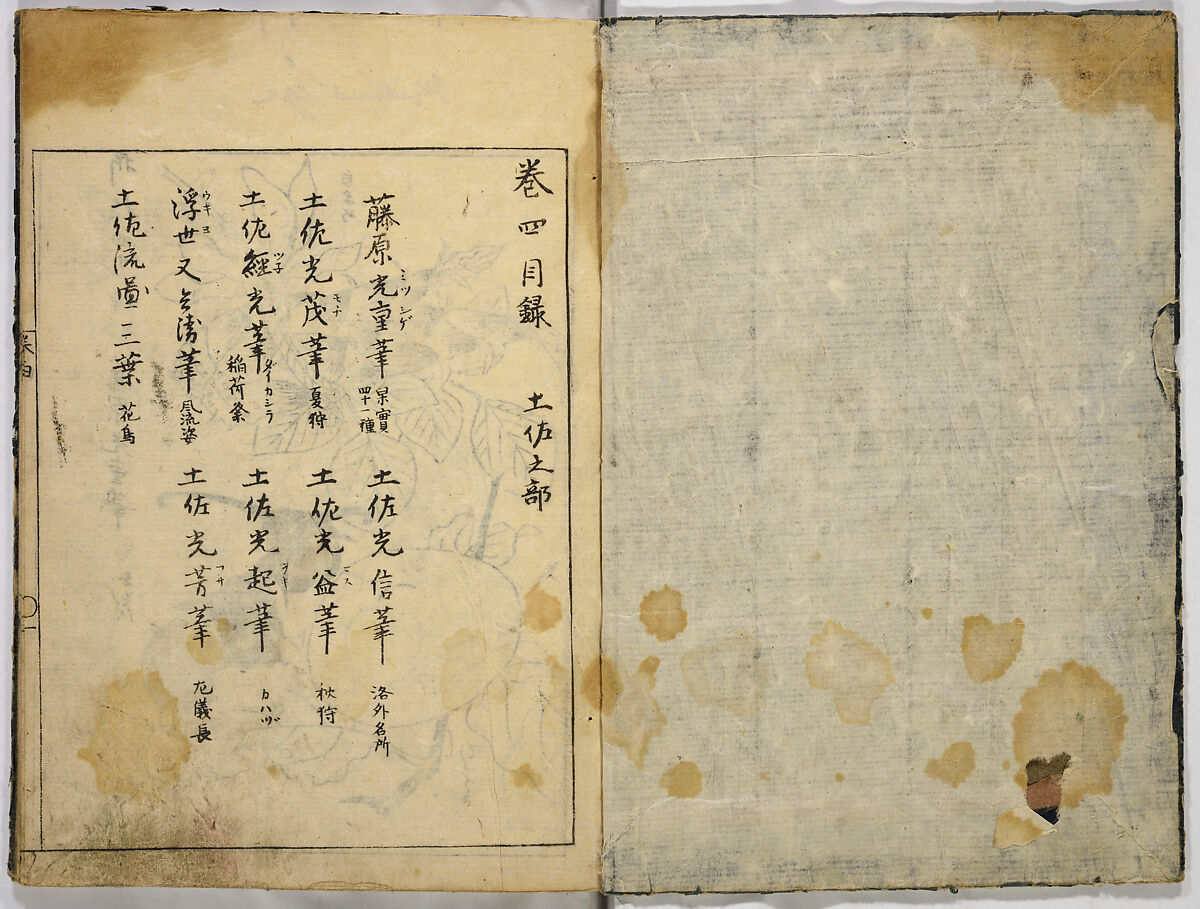 巻四目録
土佐之部
藤原光重筆 ミツシゲ 果實四十一種
土佐光信筆 洛外名所
土佐光茂筆 モチ 夏狩
土佐光益筆 マス 秋狩
土佐經光筆 ツ子 ダイカシラ 稲荷祭
土佐光起筆 ヲキ カハヅ
浮世又兵衛筆 ウキヨ 風流姿
土佐光芳筆 フサ 左儀長
土佐流圖三葉 花鳥